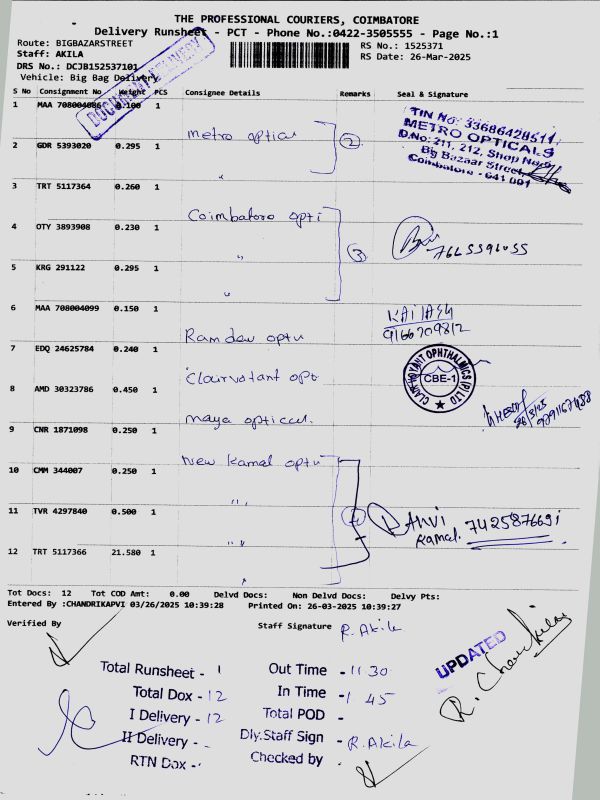 THE PROFESSIONAL COURIERS, COIMBATORE
Delivery Runsheet - PCT - Phone No.:0422-3505555 - Page No.:1
Route: BIGBAZARSTREET
RS No.: 1525371
Staff: AKILA
RS Date: 26-Mar-2025
DRS No.: DCJB152537101
Vehicle: Big Bag Delivery
DOCUMENT DELIVERY
S No Consignment No Weight PCS Consignee Details Remarks Seal & Signature
1 MAA 708004086 0.100 1
Metro optical
2
TIN No: 33686428511
METRO OPTICALS
D.No: 211, 212, Shop No.
Big Bazaar Street,
Coimbatore - 641 001
2 GDR 5393020 0.295 1
"
3 TRT 5117364 0.260 1
Coimbatore opti
4 OTY 3893908 0.230 1
"
3
5 KRG 291122 0.295 1
"
6 MAA 708004099 0.150 1
Ramdev optu
KAILASH
9166709812
7 EDQ 24625784 0.240 1
Clairvotant opt
CLAIRVOYANT OPHTHALMICS (P) LTD
CBE-1
8 AMD 30323786 0.450 1
maya optical.
9 CNR 1871098 0.250 1
New Kamal optu
10 CMM 344007 0.250 1
"
11 TVR 4297840 0.500 1
"
4
Ravi
Kamal.
12 TRT 5117366 21.580 1
"
Tot Docs: 12 Tot COD Amt: 0.00 Delvd Docs: Non Delvd Docs: Delvy Pts:
Entered By :CHANDRIKAPVI 03/26/2025 10:39:28 Printed On: 26-03-2025 10:39:27
Verified By
Staff Signature R. Akila
UPDATED
Total Runsheet - 1
Out Time - 11 30
Total Dox - 12
In Time - 1 45
I Delivery - 12
Total POD -
II Delivery -
Dly.Staff Sign - R. Akila
RTN Dox -
Checked by -